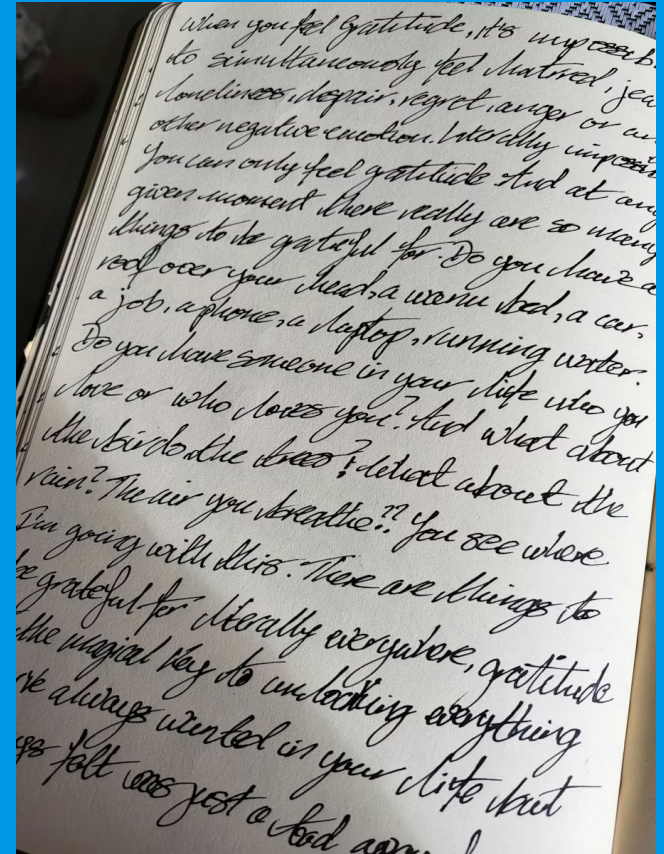 When you feel gratitude, it's impossib
to simultaneously feel hatred, jea
loneliness, despair, regret, anger or an
other negative emotion. Literally impossi
You can only feel gratitude And at any
given moment there really are so many
things to be grateful for. Do you have a
roof over your head, a warm bed, a car,
a job, a phone, a laptop, running water?
Do you have someone in your life who you
love or who loves you? And what about
the birds, the trees? What about the
rain? The air you breathe?? You see where
I'm going with this. There are things to
be grateful for literally everywhere, gratitude
the magical key to unlocking everything
've always wanted in your life but
felt was just a tad